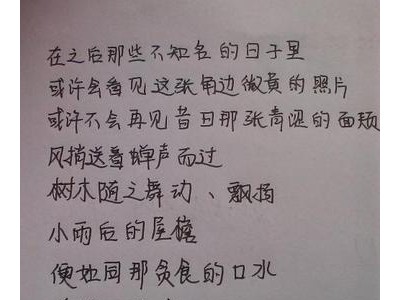 在之后那些不知名的日子里
或许会看见这张角边微黄的照片
或许不会再见昔日那张青涩的面颊
风捎送着蝉声而过
树木随之舞动、飘扬
小雨后的屋檐
便如同那贪食的口水